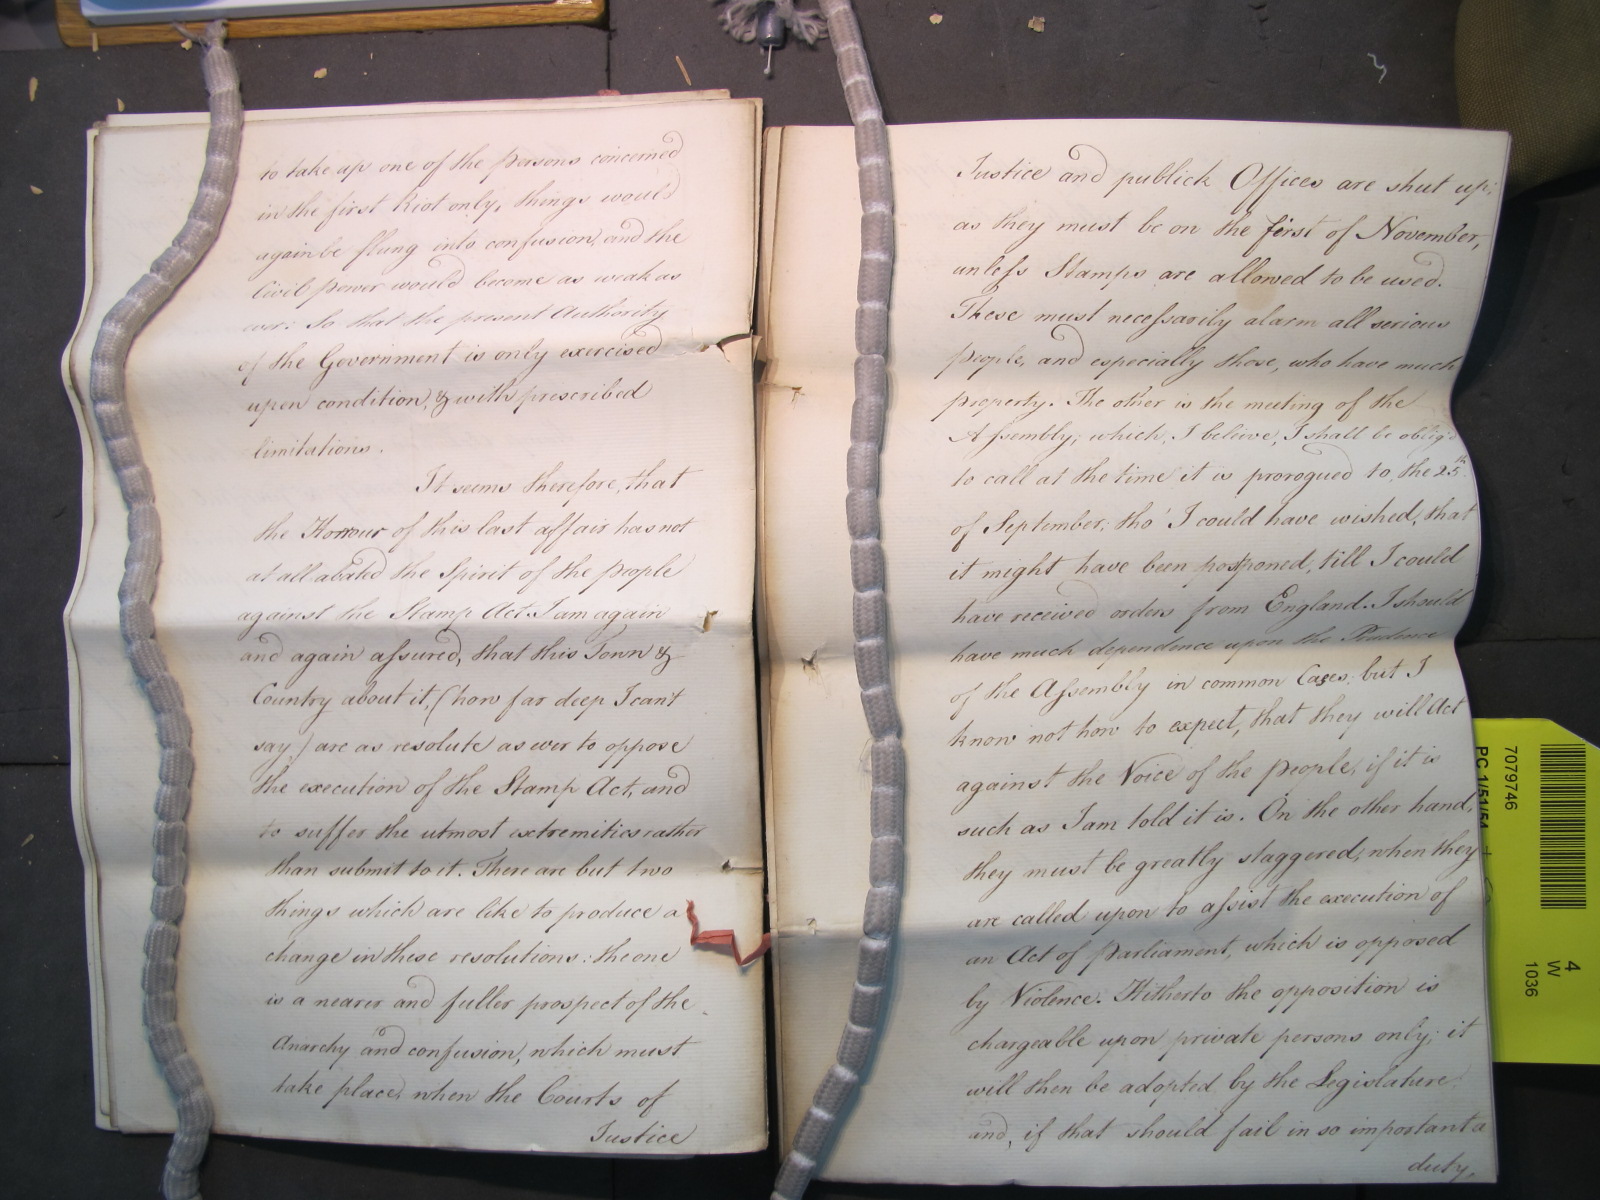 to take up one of the persons concerned
in the first Riot only, things would
again be flung into confusion, and the
Civil power would become as weak as
ever: So that the present Authority
of the Government is only exercised
upon condition, & with prescribed
limitations.
It seems therefore, that
the Horrour of this last affair has not
at all abated the Spirit of the people
against the Stamp Act. I am again
and again assured, that this Town &
Country about it, (how far deep I can't
say) are as resolute as ever to oppose
the execution of the Stamp Act, and
to suffer the utmost extremities rather
than submit to it. There are but two
things which are like to produce a
change in these resolutions: the one
is a nearer and fuller prospect of the
Anarchy and confusion, which must
take place, when the Courts of
Justice
Justice and publick Offices are shut up;
as they must be on the first of November,
unless Stamps are allowed to be used.
These must necessarily alarm all serious
people, and especially those, who have much
property. The other is the meeting of the
Assembly; which, I beleive, I shall be oblig'd
to call at the time it is prorogued to, the 25th
of September; tho' I could have wished, that
it might have been postponed, till I could
have received orders from England. I should
have much dependence upon the Prudence
of the Assembly in common Cases; but I
know not how to expect, that they will Act
against the Voice of the people, if it is
such as I am told it is. On the other hand,
they must be greatly staggered, when they
are called upon to assist the execution of
an Act of Parliament, which is opposed
by Violence. Hitherto the opposition is
chargeable upon private persons only; it
will then be adopted by the Legislature:
and, if that should fail in so important a
duty,
7079746
PC 1/51/54
4
W
1036